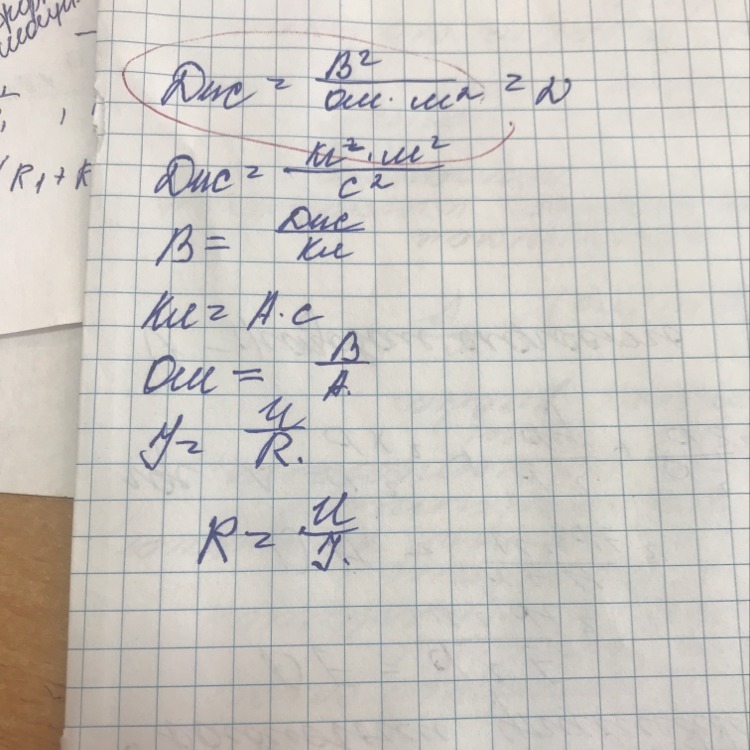 Дж = В² / Ом · м² = 2
Дж = кг² · м² / с²
В = Дж / Кл
Кл = А · с
Ом = В / А.
I = U / R.
R = U / I.
R₁ + R